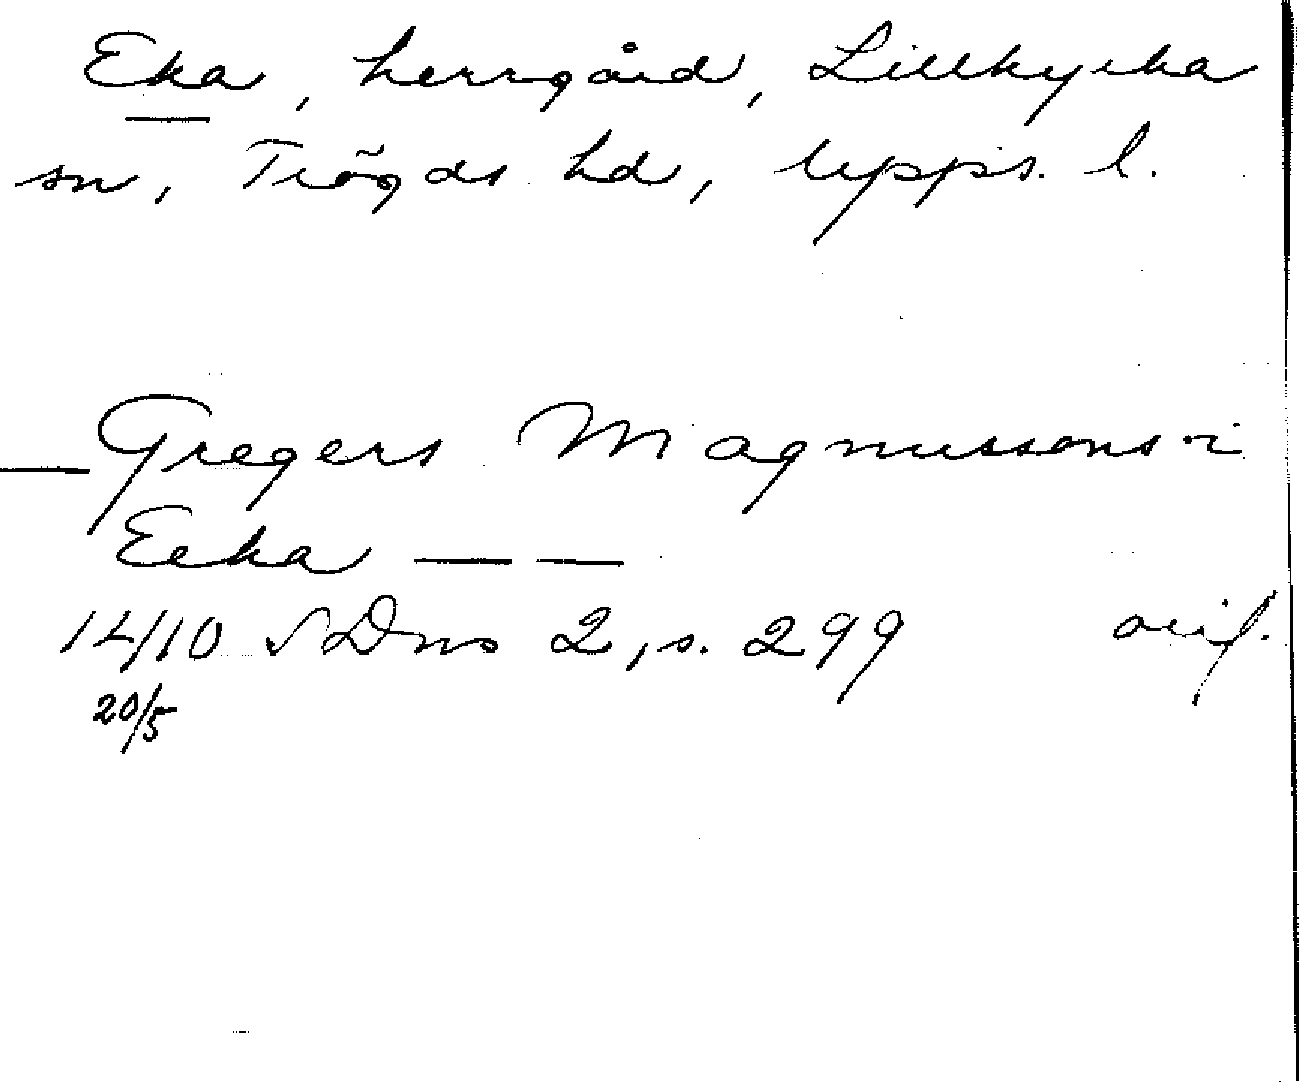 Eka, herrgård, Lillkyrka
sn, Trögds hd, Upps. l.
— Gregers Magnussons i
Eeka — —
14/10 SDns 2, s. 299 orig.
20/5